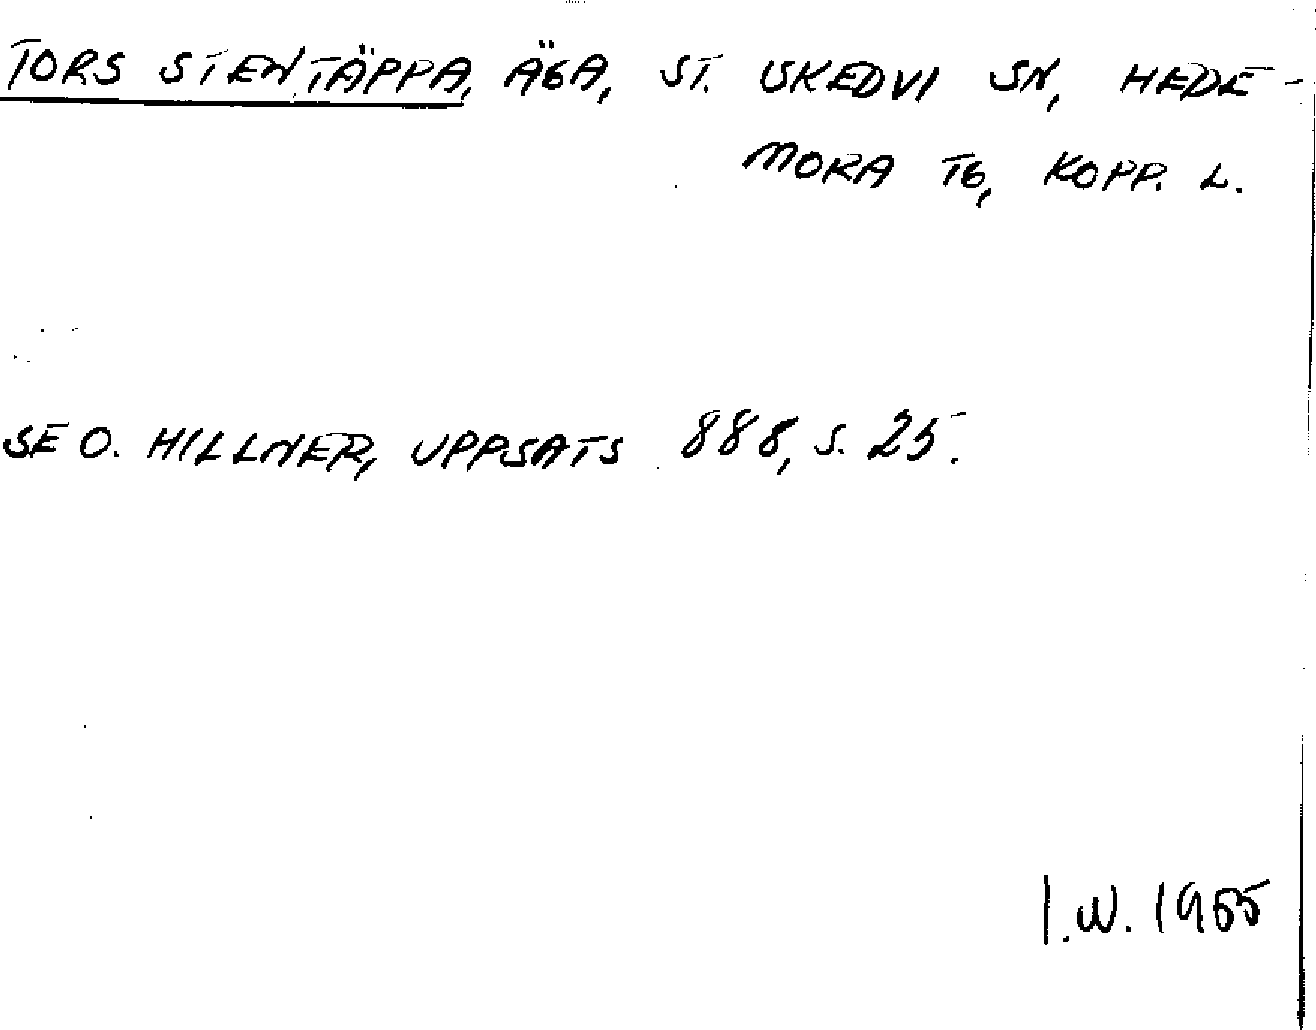 TORS STENTÄPPA, ÄGA, ST. SKEDVI SN, HEDE-
MORA TG, KOPP. L.
SE O. HILLNER, UPPSATS 888, S. 25.
I.W. 1955